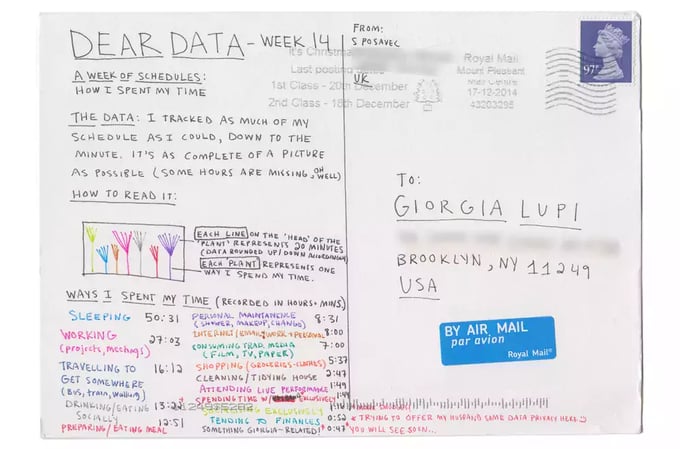 DEAR DATA - WEEK 14
A WEEK OF SCHEDULES:
HOW I SPENT MY TIME
THE DATA: I TRACKED AS MUCH OF MY
SCHEDULE AS I COULD, DOWN TO THE
MINUTE. IT'S AS COMPLETE OF A PICTURE
AS POSSIBLE (SOME HOURS ARE MISSING, OH WELL)
HOW TO READ IT:
EACH LINE ON THE 'HEAD' OF THE
'PLANT' REPRESENTS 20 MINUTES
(DATA ROUNDED UP/DOWN ACCORDINGLY)
EACH PLANT REPRESENTS ONE
WAY I SPEND MY TIME.
WAYS I SPENT MY TIME (RECORDED IN HOURS+MINS)
SLEEPING 50:31
WORKING 27:03
(projects, meetings)
TRAVELLING TO 16:12
GET SOMEWHERE
(Bus, train, walking)
DRINKING/EATING 13:22
SOCIALLY
PREPARING/EATING MEAL 12:51
PERSONAL MAINTANENCE 8:31
(SHOWER, MAKEUP, CHANGE)
INTERNET (EMAIL/WORK+PERSONAL) 8:00
CONSUMING TRAD. MEDIA 7:00
(FILM, TV, PAPER)
SHOPPING (GROCERIES+CLOTHES) 5:37
CLEANING/TIDYING HOUSE 2:47
ATTENDING LIVE PERFORMANCE 1:49
SPENDING TIME W/ EXCLUSIVELY 1:49
EXCLUSIVELY
TENDING TO FINANCES 0:52
SOMETHING GIORGIA-RELATED! 0:47
* TRYING TO OFFER MY HUSBAND SOME DATA PRIVACY HERE :)
YOU WILL SEE SOON...
FROM:
S POSAVEC
UK
It's Christmas
Last posting dates
1st Class - 20th December
2nd Class - 18th December
Royal Mail
Mount Pleasant
Mail Centre
17-12-2014
43203295
97P
TO:
GIORGIA LUPI
BROOKLYN, NY 11249
USA
BY AIR MAIL
par avion
Royal Mail